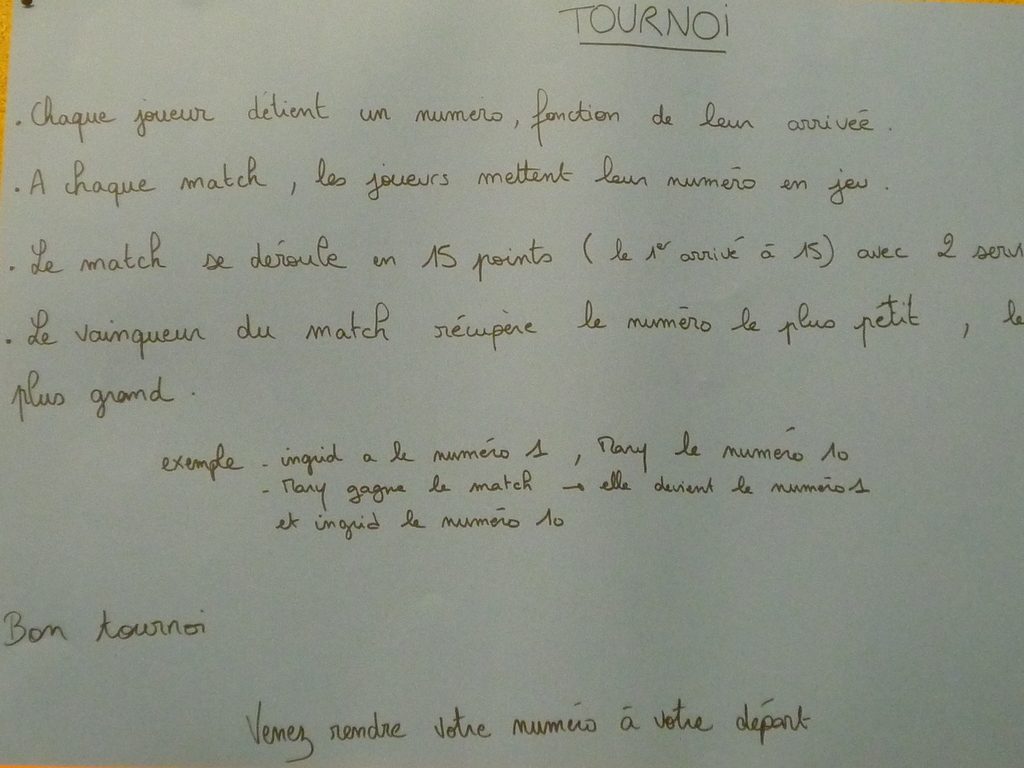 TOURNOi
. Chaque joueur détient un numéro, fonction de leur arrivée.
. A chaque match, les joueurs mettent leur numéro en jeu.
. Le match se déroule en 15 points (le 1er arrivé à 15) avec 2 serv
. Le vainqueur du match récupère le numéro le plus petit, le
plus grand.
exemple - ingrid a le numéro 1, Mary le numéro 10
- Mary gagne le match → elle devient le numéro 1
et ingrid le numéro 10
Bon tournoi
Venez rendre votre numéro à votre départ